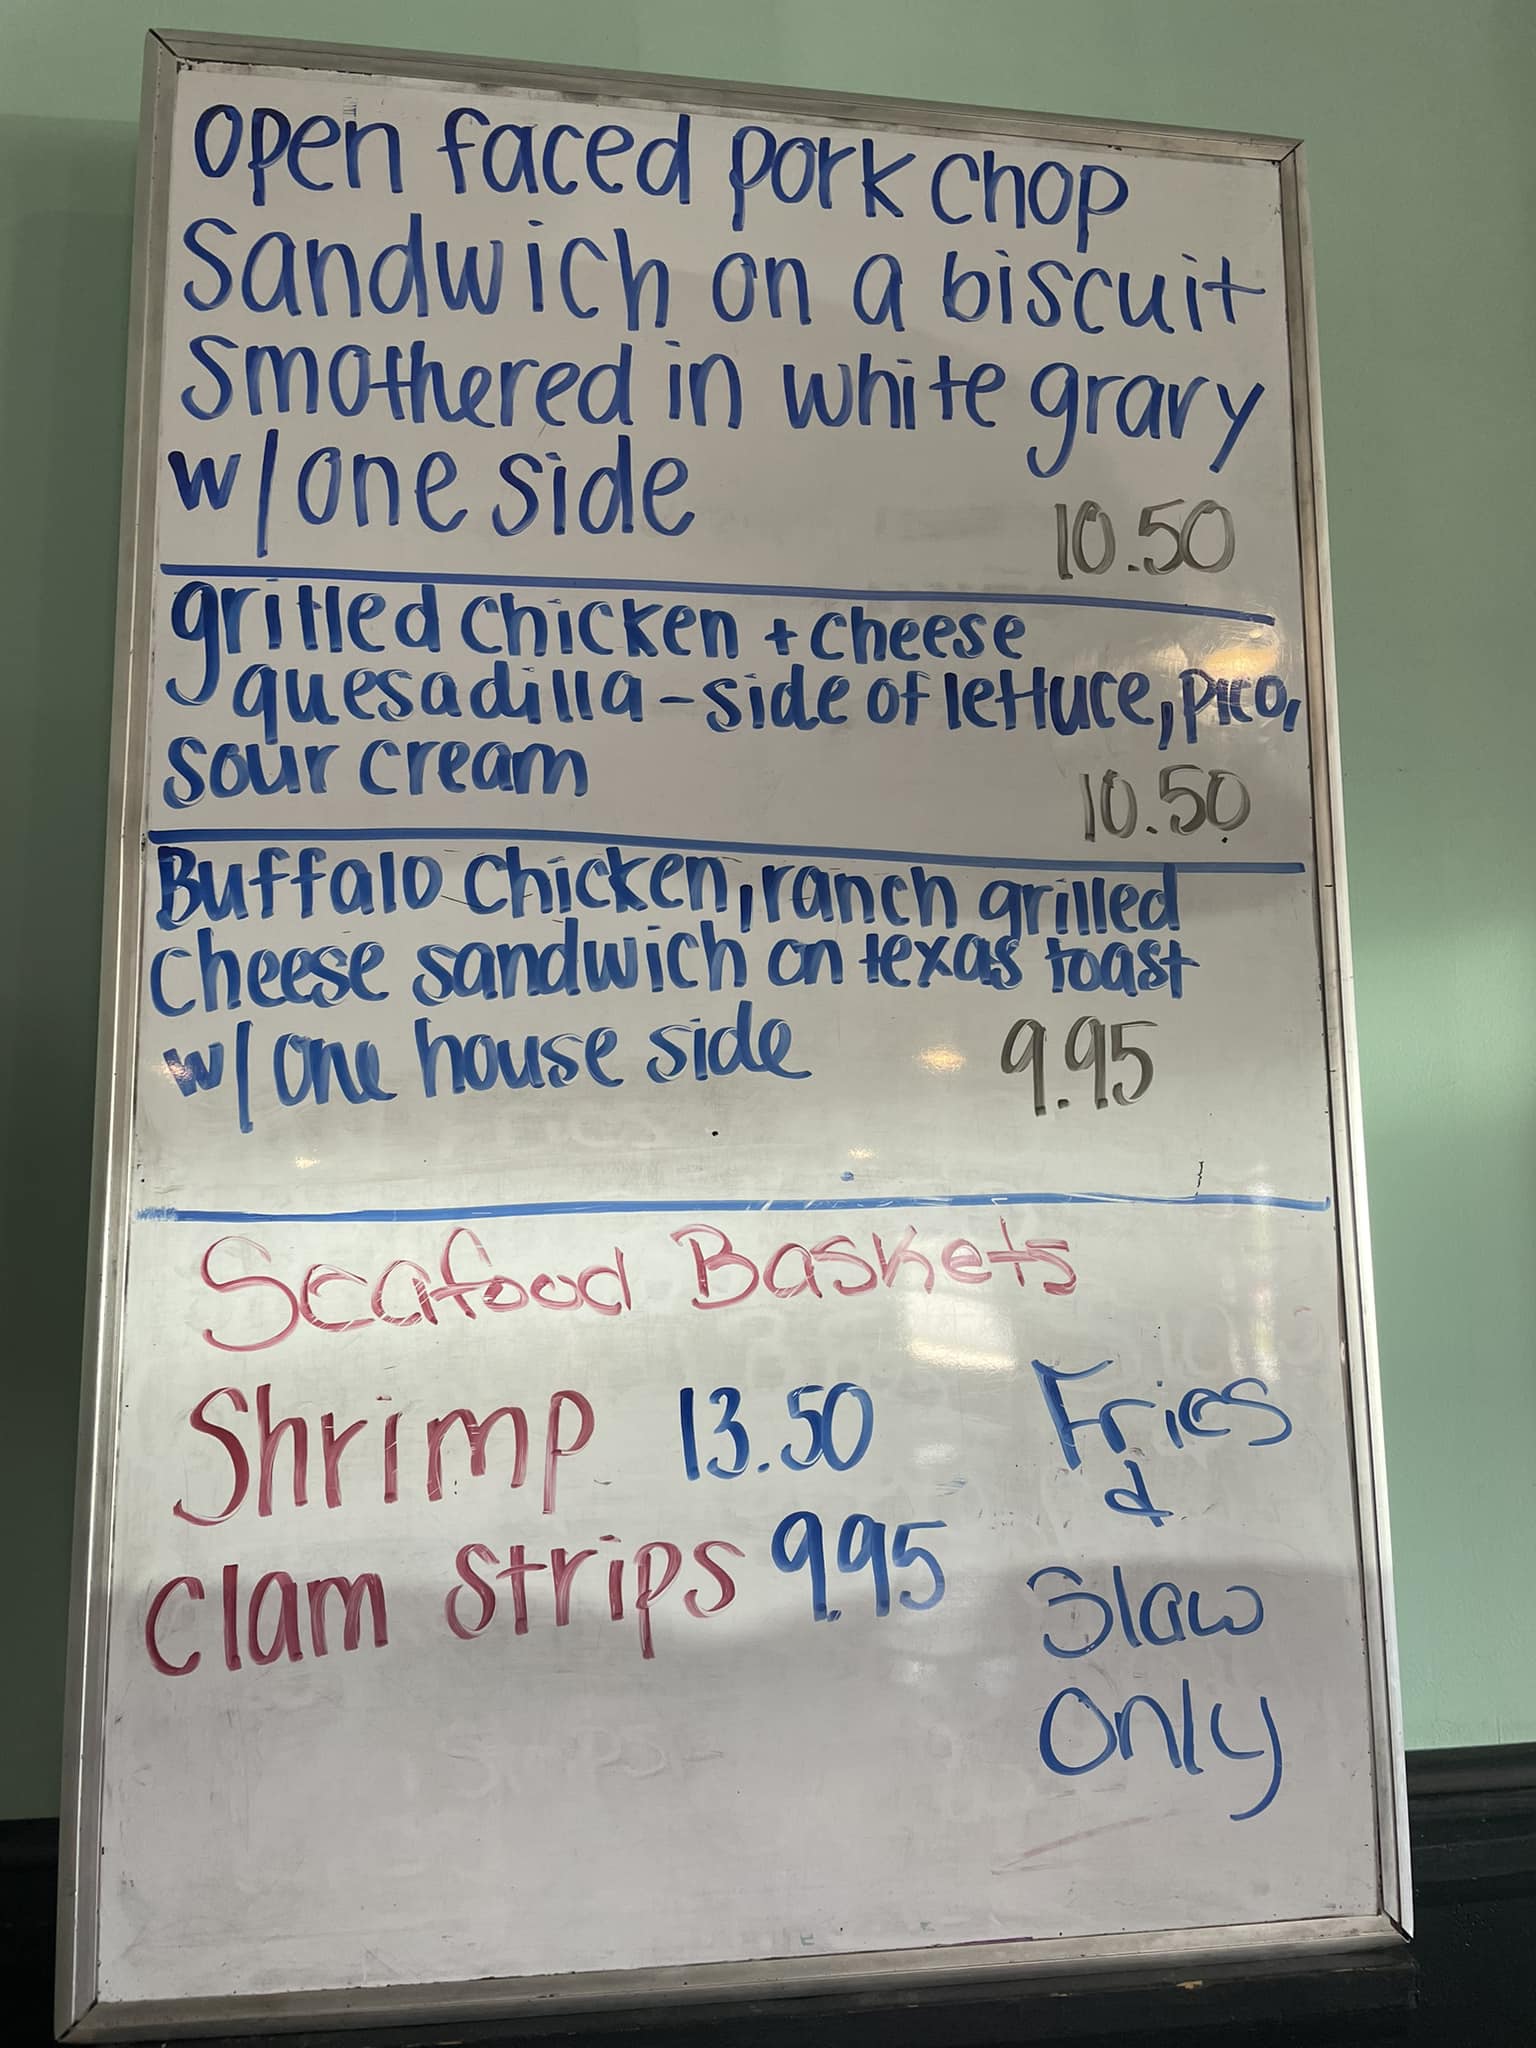 open faced pork chop
Sandwich on a biscuit
Smothered in white gravy
w/one side
10.50
grilled chicken + cheese
quesadilla - side of lettuce, pico,
sour cream
10.50
Buffalo chicken, ranch grilled
cheese sandwich on texas toast
w/ one house side 9.95
Seafood Baskets
Shrimp 13.50
Clam strips 9.95
Fries
&
Slaw
Only